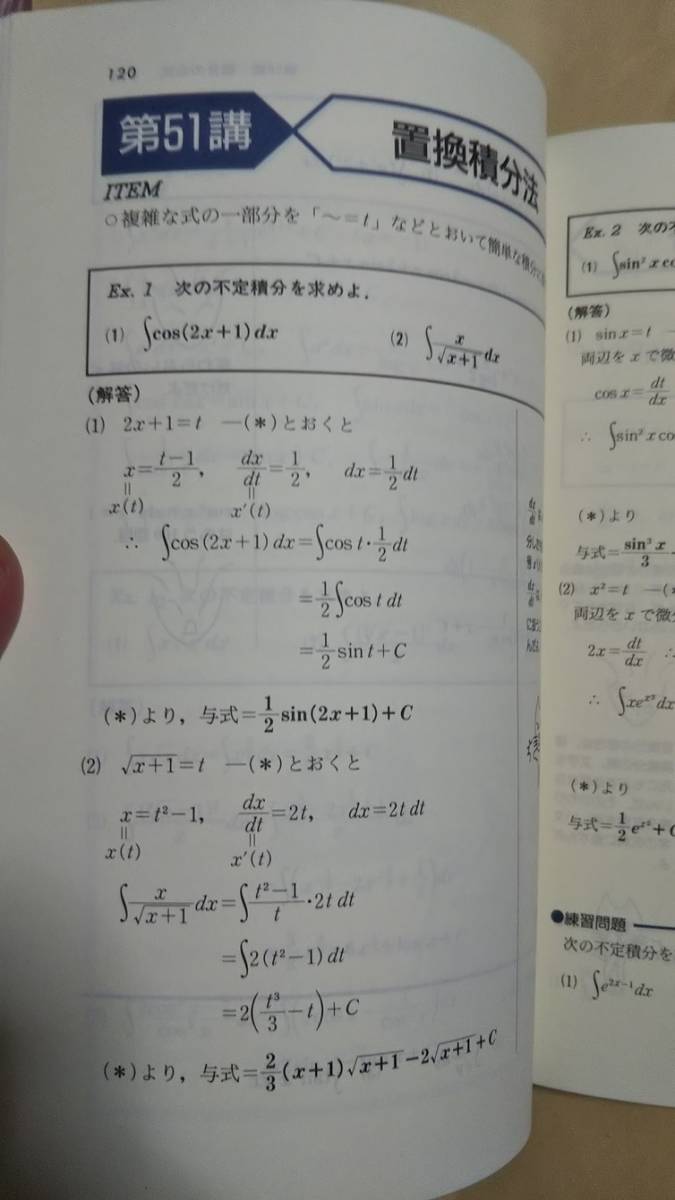 120
第51講
置換積分法
ITEM
○複雑な式の一部分を「～=t」などとおいて簡単な積分
Ex. 1 次の不定積分を求めよ.
(1) ∫cos(2x+1)dx (2) ∫x/√(x+1) dx
(解答)
(1) 2x+1=t —(*)とおくと
x=(t-1)/2, dx/dt=1/2, dx=1/2 dt
x(t) x'(t)
∴ ∫cos(2x+1)dx=∫cos t·1/2 dt
=1/2∫cos t dt
=1/2 sin t+C
(*)より, 与式=1/2 sin(2x+1)+C
(2) √(x+1)=t —(*)とおくと
x=t²-1, dx/dt=2t, dx=2t dt
x(t) x'(t)
∫x/√(x+1) dx=∫(t²-1)/t·2t dt
=∫2(t²-1)dt
=2(t³/3-t)+C
(*)より, 与式=2/3(x+1)√(x+1)-2√(x+1)+C
Ex. 2 次の不
(1) ∫sin²x co
(解答)
(1) sin x=t
両辺をxで微
cos x=dt/dx
∴ ∫sin²x co
(*)より
与式=sin³x/3
(2) x²=t —(*
両辺をxで微分
2x=dt/dx
∴ ∫xe^(x²)dx
(*)より
与式=1/2 e^(x²)+C
●練習問題
次の不定積分を
(1) ∫e^(2x-1)dx